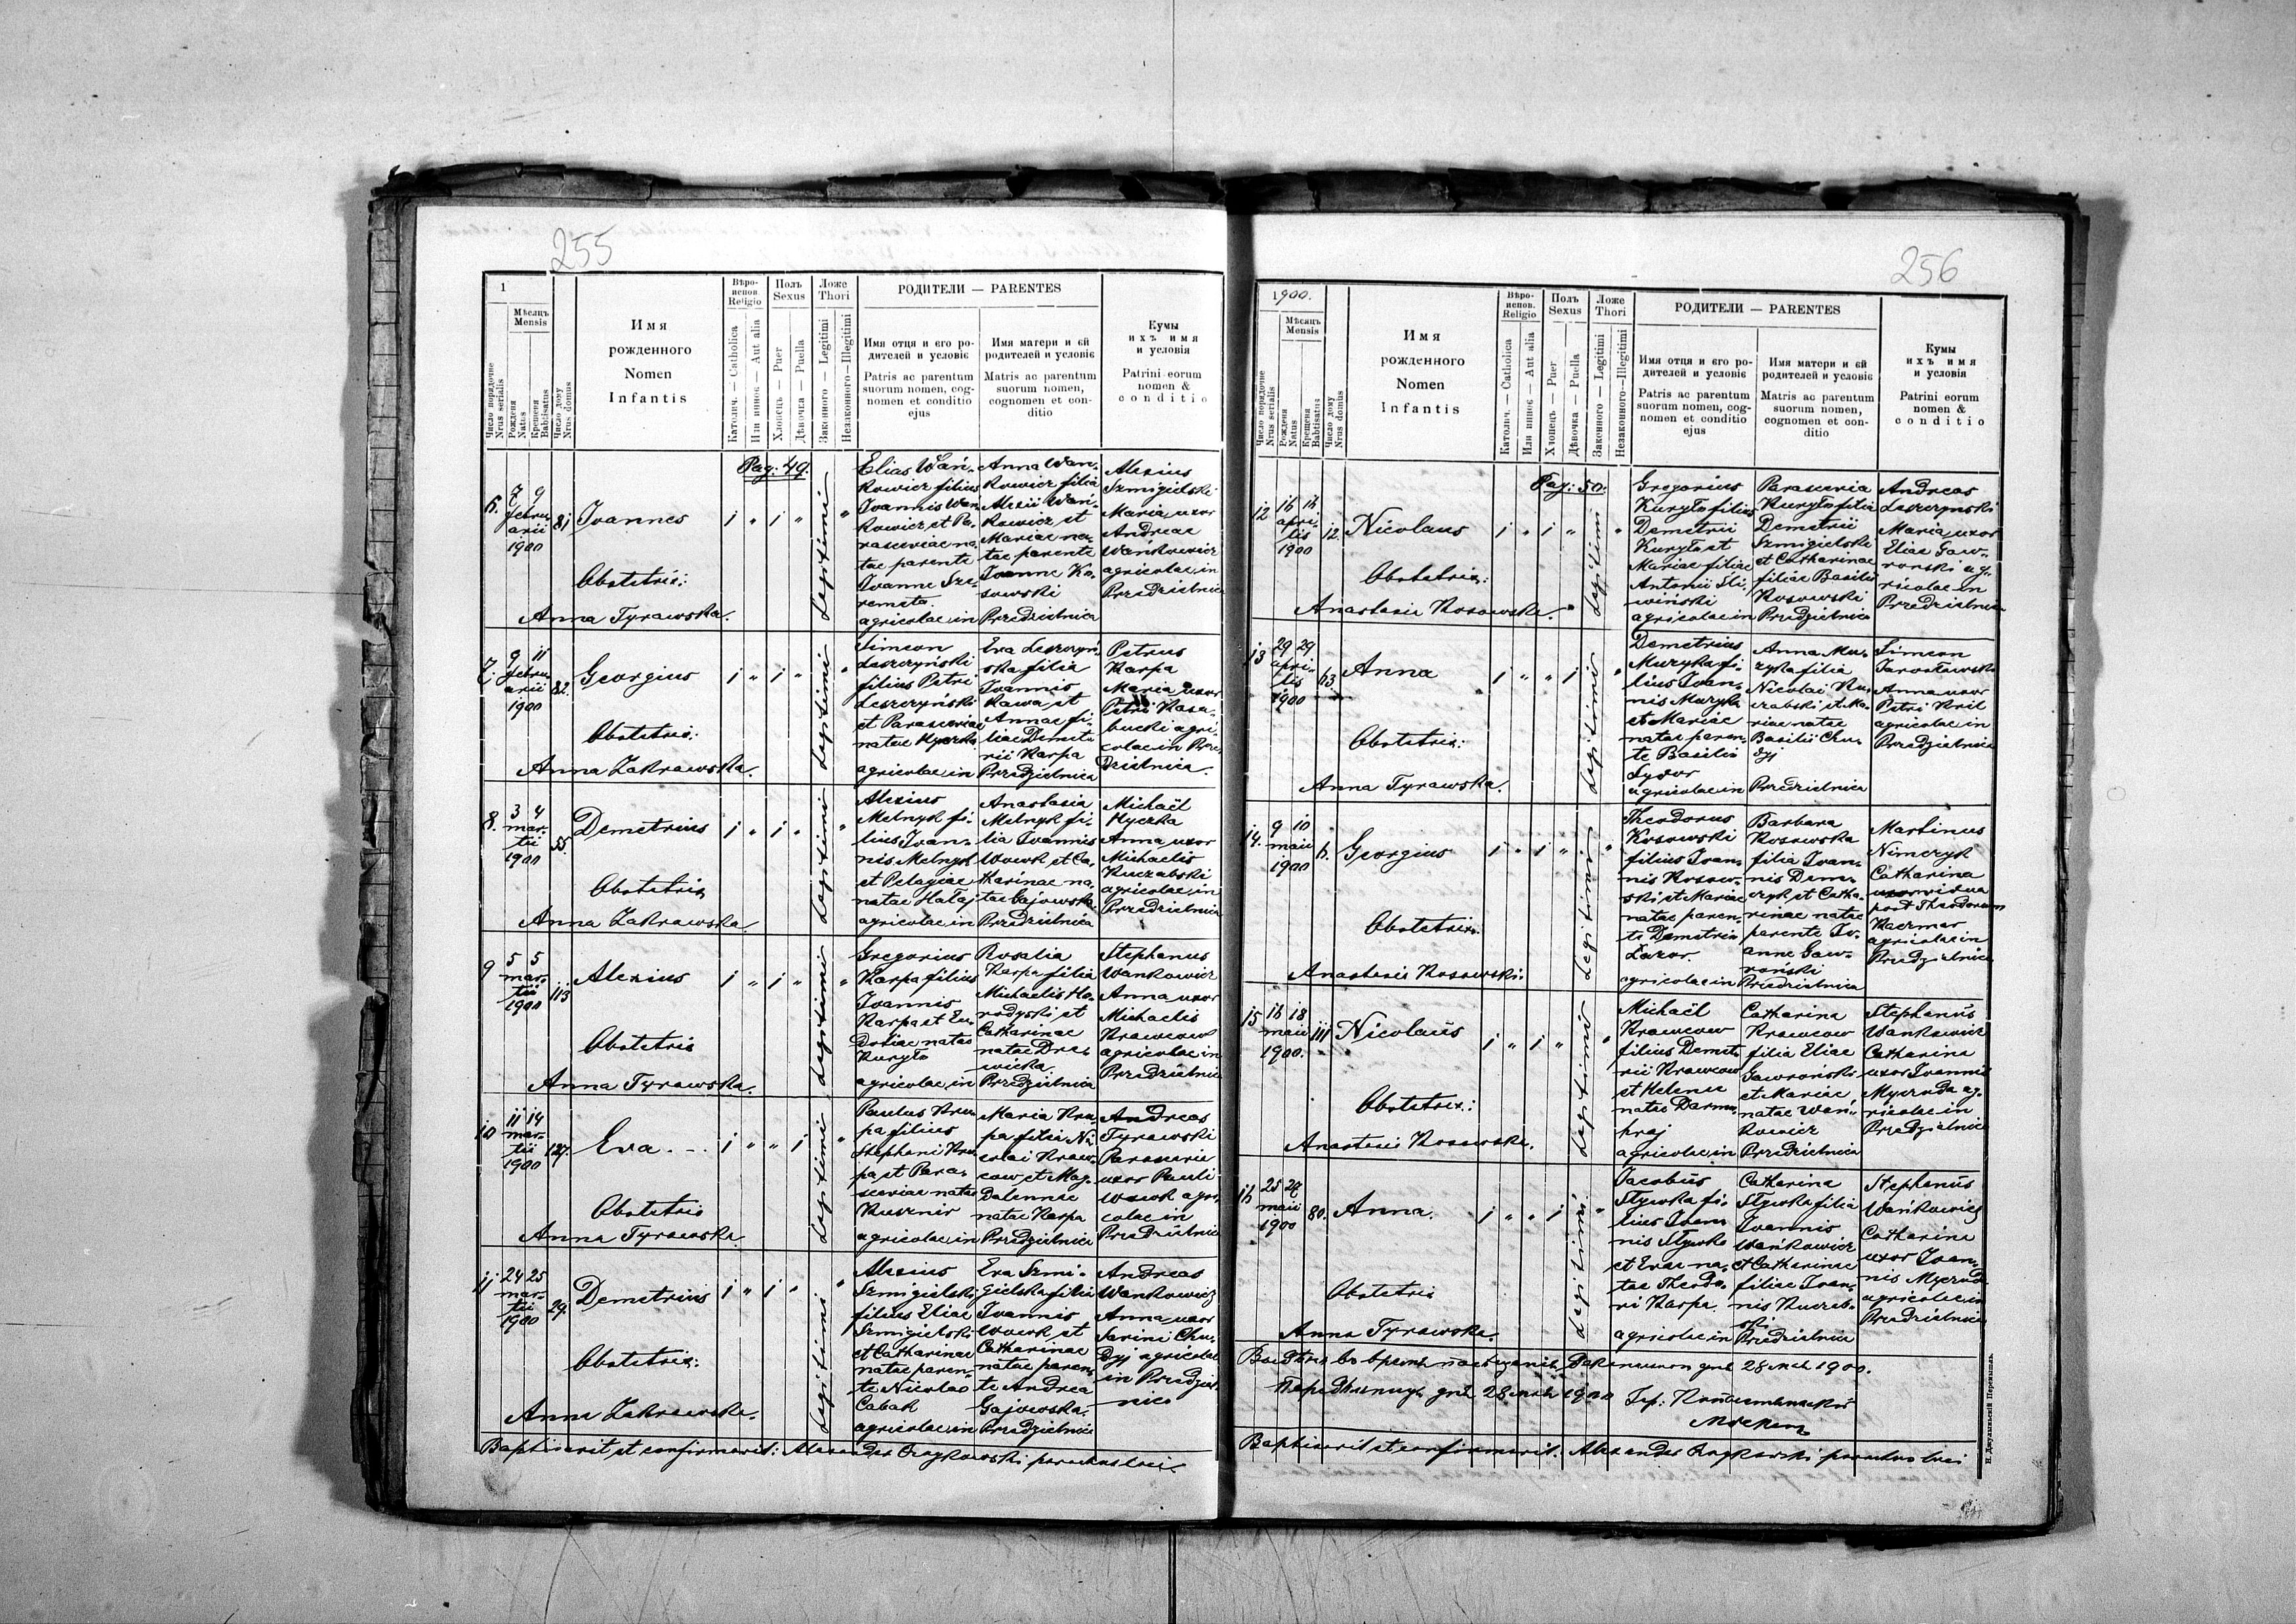 255
1
Мѣсяцъ
Mensis
Число порядочне
Nrus serialis
Рожденя
Natus
Крещеня
Babtisatus
Число дому
Nrus domus
Имя
рожденного
Nomen
Infantis
Вѣро-
испов.
Religio
Католич. — Catholica
Или инное — Aut alia
Полъ
Sexus
Хлопецъ — Puer
Дѣвочка — Puella
Ложе
Thori
Законного — Legitimi
Незаконного — Illegitimi
РОДИТЕЛИ — PARENTES
Имя отця и єго ро-
дителей и условіє
Patris ac parentum
suorum nomen, cog-
nomen et conditio
ejus
Имя матери и єй
родителей и условіє
Matris ac parentum
suorum nomen,
cognomen et con-
ditio
Кумы
ихъ имя
и условія
Patrini eorum
nomen &
conditio
Pag. 49.
6.
7 9
febru-
arii
1900
81
Ioannes
1 " 1 " "
Legitimi
Obstetrix:
Anna Tyrawska.
Elias Wań-
kowicz filius
Ioannis Wań-
kowicz et Pa-
rasceviae na-
tae parente
Ioanne Sze-
remeta.
agricolae in
Anna Wan-
kowicz filia
Alexii Wań-
kowicz et
Mariae na-
tae parente
Ioanne Ko-
sowski
Przedzielnica
Alexius
Szmigielski
Maria uxor
Andreae
Wańkowicz
agricolae in
Przedzielnica
7.
9 11
febru-
arii
1900
82.
Georgius
1 " 1 " "
Legitimi
Obstetrix:
Anna Zakrawska.
Simeon
Leszczyński
filius Petri
Leszczyński
et Parasceviae
natae Hyczka
agricolae in
Eva Leszczyń-
ska filia
Ioannis
Kawa et
Annae fi-
liae Demet-
rii Karpa
Przedzielnica
Petrus
Karpa
Maria uxor
Petri Kasa-
bucki agri-
colae in Prze-
dzielnica.
8.
3 4
mar-
tii
1900
55.
Demetrius
1 " 1 " "
Legitimi
Obstetrix
Anna Zakrawska.
Alexius
Melnyk fi-
lius Ioan-
nis Melnyk
et Pelagiae
natae Hałaj
agricolae in
Anastasia
Melnyk fi-
lia Ioannis
Wowk et Ca-
tharinae na-
tae Gajowska.
Przedzielnica
Michaël
Hyczka
Anna uxor
Michaelis
Kuczabski
agricolae in
Przedzielnica
9
5 5
mar-
tii
1900
113
Alexius
1 " 1 " "
Legitimi
Obstetrix
Anna Tyrawska.
Gregorius
Karpa filius
Ioannis
Karpa et Eu-
dotiae natae
Kuryło
agricolae in
Rosalia
Karpa filia
Michaelis Ho-
rodyski et
Catharinae
natae Dre-
wicka.
Przedzielnica
Stephanus
Wankowicz
Anna uxor
Michaelis
Krawczow
agricolae in
Przedzielnica
10
11 14
mar-
tii
1900
127.
Eva
1 " " 1 "
Legitimi
Obstetrix
Anna Tyrawska.
Paulus Kru-
pa filius
Stephani Kru-
pa et Para-
sceviae natae
Kusznir
agricolae in
Maria Kru-
pa filia Ni-
colai Kraw-
cow et Mag-
dalennae
natae Karpa
Przedzielnica
Andreas
Tyrawski
Parascevia
uxor Pauli
Wowk agri-
colae in
Przedzielnica
11
24 25
mar-
tii
1900
29.
Demetrius
1 " 1 " "
Legitimi
Obstetrix:
Anna Zakrawska.
Alexius
Szmigielski
filius Eliae
Szmigielski
et Catharinae
natae paren-
te Nicolao
Cabak
agricolae in
Eva Szmi-
gielska filia
Ioannis
Wowk et
Catharinae
natae paren-
te Andrea
Gajowska.
Przedzielnica
Andreas
Wankowicz
Anna uxor
Chu-
dyj agricolae
in Przedziel-
nica
Baptisavit et confirmavit: Alexander parochus loci.
256
1900.
Мѣсяцъ
Mensis
Число порядочне
Nrus serialis
Рожденя
Natus
Крещеня
Babtisatus
Число дому
Nrus domus
Имя
рожденного
Nomen
Infantis
Вѣро-
испов.
Religio
Католич. — Catholica
Или инное — Aut alia
Полъ
Sexus
Хлопецъ — Puer
Дѣвочка — Puella
Ложе
Thori
Законного — Legitimi
Незаконного — Illegitimi
РОДИТЕЛИ — PARENTES
Имя отця и єго ро-
дителей и условіє
Patris ac parentum
suorum nomen, cog-
nomen et conditio
ejus
Имя матери и єй
родителей и условіє
Matris ac parentum
suorum nomen,
cognomen et con-
ditio
Кумы
ихъ имя
и условія
Patrini eorum
nomen &
conditio
Pag: 50:
12
16 16
apri-
lis
1900
12.
Nicolaus
1 " 1 " "
Legitimi
Obstetrix:
Anastasia Kosowska.
Gregorius
Kuryło filius
Demetrii
Kuryło et
Mariae filiae
Antonii Śli-
wiński
agricolae in
Parascevia
Kuryło filia
Demetrii
Szmigielski
et Catharinae
filiae Basilii
Kosowski
Przedzielnica
Andreas
Leszczynski
Maria uxor
Eliae Gaw-
ronski ag-
ricolae in
Przedzielnica
13
29 29
apri-
lis
1900
63.
Anna
1 " " 1 "
Legitimi
Obstetrix:
Anna Tyrawska.
Demetrius
Muzyka fi-
lius Ioan-
nis Muzyka
et Mariae
natae paren-
te Basilio
Sydor
agricolae in
Anna Mu-
zyka filia
Nicolai Ku-
czabski et Ma-
riae natae
Basilii Chu-
dyj
Przedzielnica
Simeon
Jarosławski
Anna uxor
Petri Kril
agricolae in
Przedzielnica
14.
9 10
maii
1900
6.
Georgius
1 " 1 " "
Legitimi
Obstetrix.
Anastasia Kosowski.
Theodorus
Kosowski
filius Ioan-
nis Kosow-
ski et Mariae
natae paren-
te Demetrio
Lazor.
agricolae in
Barbara
Kosowska
filia Ioan-
nis Dem-
czyk et Catha-
rinae natae
parente Io-
anne Gaw-
roński
Przedzielnica
Martinus
Nimczyk
Catharina
vidua
post Theodorum
Kaczmar
agricolae in
Przedzielnica
15
16 18
maii
1900.
111
Nicolaŭs
1 " 1 " "
Legitimi
Obstetrix:
Anastasia Kosowska.
Michaël
Krawcow
filius Demet-
rii Krawcow
et Helenae
natae Darmo-
hraj
agricolae in
Catharina
Krawcow
filia Eliae
Gawroński
et Mariae
natae Wań-
kowicz
Przedzielnica
Stephanŭs
Wankowicz
Catharina
uxor Ioannis
Myczuda ag-
ricolae in
Przedzielnica
16
25 27
maii
1900
80.
Anna.
1 " " 1 "
Legitimi
Obstetrix
Anna Tyrawska.
Jacobŭs
Stywka fi-
lius Ioan-
nis Stywka
et Evae na-
tae Theodo-
ri Karpa.
agricolae in
Catharina
Stywka filia
Ioannis
Wańkowicz
et Catharinae
filiae Ioan-
nis Kuczab-
ski
Przedzielnica
Stephanŭs
Wańkowicz
Catharina
uxor Ioan-
nis Myczuda
agricolae in
Przedzielnica
дня 28 мая 1900.
дня 28 мая 1900
Baptisavit et confirmavit: Alexander parochus loci